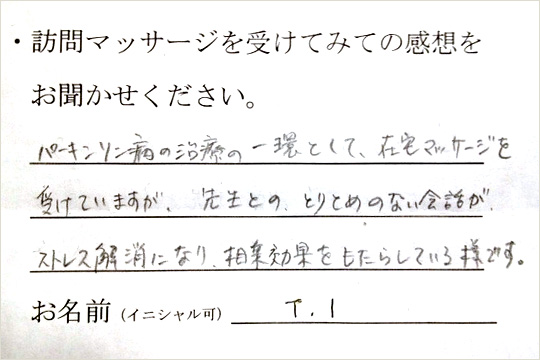 ・訪問マッサージを受けてみての感想を
お聞かせください。
パーキンソン病の治療の一環として、在宅マッサージを
受けていますが、先生との、とりとめのない会話が、
ストレス解消になり、相乗効果をもたらしている様です。
お名前（イニシャル可） T.I